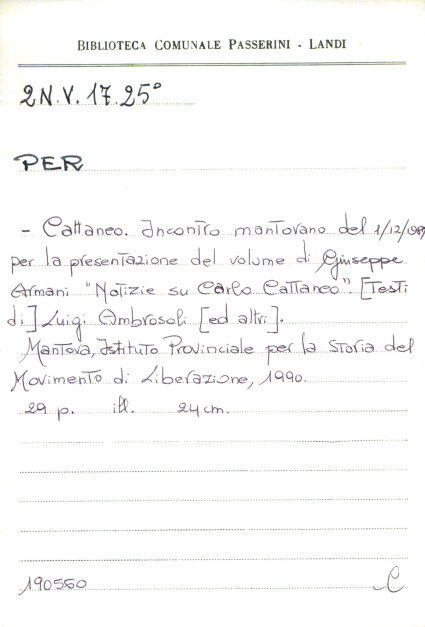 BIBLIOTECA COMUNALE PASSERINI - LANDI
2N.V. 17.25°
PER
- Cattaneo. Incontro mantovano del 1/12/1989
per la presentazione del volume di Giuseppe
Armani "Notizie su Carlo Cattaneo". [Testi
di] Luigi Ambrosoli [ed altri].
Mantova, Istituto Provinciale per la Storia del
Movimento di Liberazione, 1990.
29 p. ill. 24 cm.
190550 C